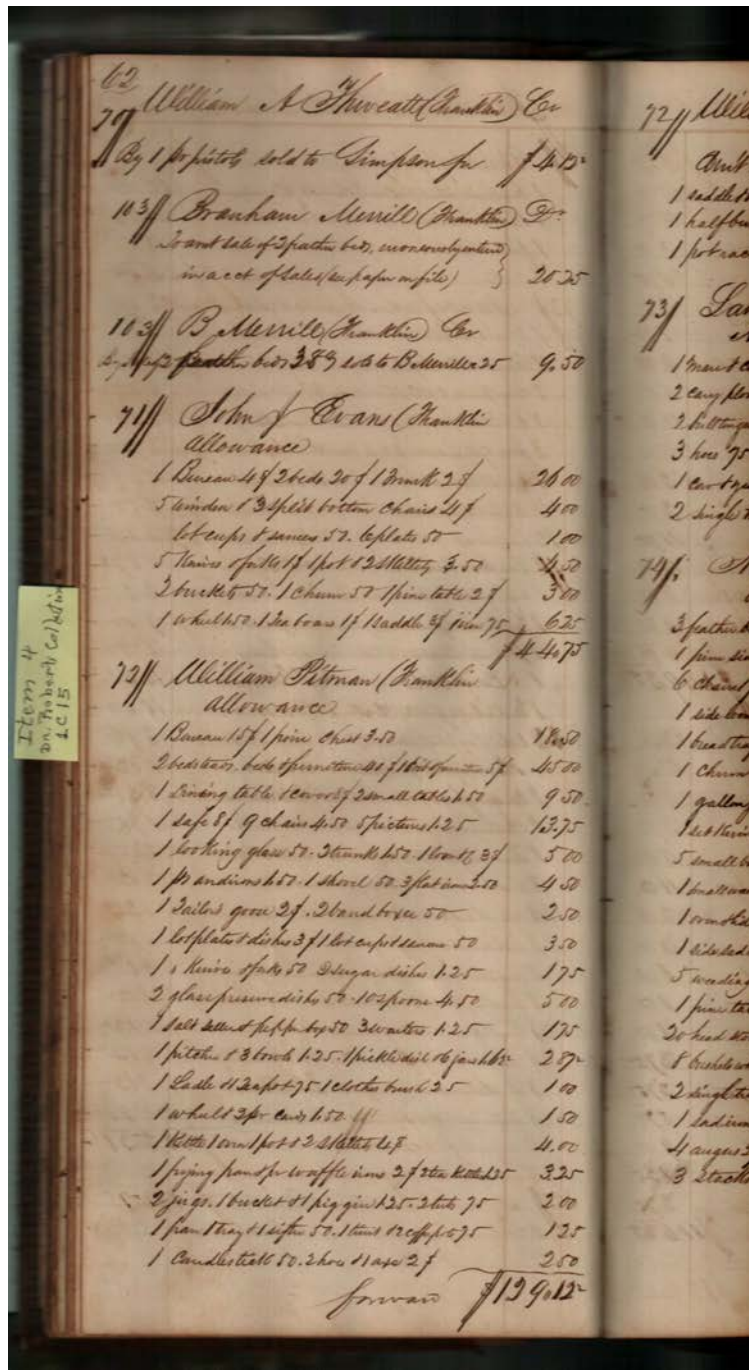 62
70 William A Threeatt (Franklin) Cr
By 1 pr pistols sold to Simpson for $4.12
103 Branham Merrill (Franklin) Dr
To amt sale of 2 feather beds, erroneously entered
in acct of sales (see paper on file) 20.25
103 B Merrill (Franklin) Cr
2 feather beds 38 sold to B Merrill 25 9.50
71 John J Evans (Franklin
allowance
1 Bureau 4$ 2 beds 20$ 1 Trunk 2$ 26 00
5 windsor & 3 split bottom chairs 4$ 4 00
lot cups & saucers 50. 6 plates 50 1 00
5 Knives & forks 1$ 1 pot & 2 skillets 3.50 4.50
2 buckets 50. 1 churn 50 1 pine table 2$ 3 00
1 wheel 1.50. 1 Tea board 1$ 1 saddle 3$ 1 iron 75 6 25
$44.75
72 William Pitman (Franklin
allowance
1 Bureau 15$ 1 pine chest 3.50 18.50
2 bedsteads. beds & furniture 40$ 5$ 45 00
1 Dining table & cover 8$ 2 small tables 1.50 9 50
1 safe 8$ 9 chairs 4.50 5 pictures 1.25 13.75
1 looking glass 50. 2 trunks 1.50. 1 3$ 5 00
1 pr andirons 1.50. 1 shovel 50. 3 flat irons 2.50 4 50
1 Tailors goose 2$. 2 band boxes 50 2 50
1 lot plates & dishes 3$ 1 lot cups & saucers 50 3 50
Knives & forks 50 2 sugar dishes 1.25 1 75
2 glass preserve dishes 50. 10 spoons 4.50 5 00
1 salt seller & pepper box 50 3 waiters 1.25 1 75
1 pitcher & 3 bowls 1.25. 1 pickle dish & 6 jars 1.62 2 87
1 Ladle & 2 teapot 75 1 clothes brush 25 1 00
1 wheel & 2 pr cards 1.50 1 50
1 Kettle 1 oven 1 pot & 2 skillets 4$ 4.00
1 frying pan & pr waffle irons 2$ 2 tea kettles 1.25 3.25
2 jugs. 1 bucket & 1 piggin 1.25. 2 tubs 75 2 00
1 pan 1 tray & 1 sifter 50. 75 1 25
1 Candlestick 50. 2 hoes & 1 axe 2$ 2 50
forward $129.12
Item 4
Dr. Robert Collection
1C15
72 Will
Amt
1 saddle
1 half bu
1 pot rac
73
1
2 cary plow
2
3 hoes 75
1
2 single
74
3 feather
1 pine
6 chairs
1 side
1 bread tray
1 churn
1 gallon
1 set Knives
5 small
1 small
1 oven
1 side sad
5 weeding
1 pine tab
20 head
8 bushels
2 singletr
1 sad iron
4 augers
3 stacks